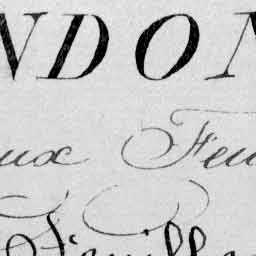 NDON
ux Feu
Feuille